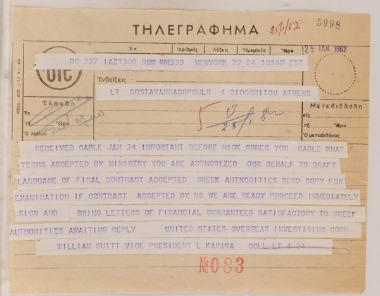 ΤΗΛΕΓΡΑΦΗΜΑ
25/1/62
5998
Ἐκ Ἀριθμός Λέξεις Ἡμερομηνία Ὥρα
25 ΙΑΝ. 1962
337 NEWYORK 72 24 1036P EST
OTE
Ἐνδείξεις
LT 4 DIOCHKITOU ATHENS
Ἐλήφθη
Μετεδόθη
RECEIVED CABLE JAN 24 IMPORTANT BEFORE WICK COMES YOU CABLE WHAT
TERMS ACCEPTED BY MINISTRY YOU ARE AUTHORIZED OUR BEHALF TO DRAFT
LANGUAGE OF FINAL CONTRACT ACCEPTED GREEK AUTHORITIES SEND COPY FOR
EXAMINATION IF CONTRACT ACCEPTED BY US WE ARE READY PROCEED IMMEDIATELY
SIGN AND BRING LETTERS OF FINANCIAL GUARANTEES SATISFACTORY TO GREEK
AUTHORITIES AWAITING REPLY UNITED STATES OVERSEAS INVESTING CORP
WILLIAM SUITT VICE PRESIDENT L KARIKA COLL LT 4 24
№ 083